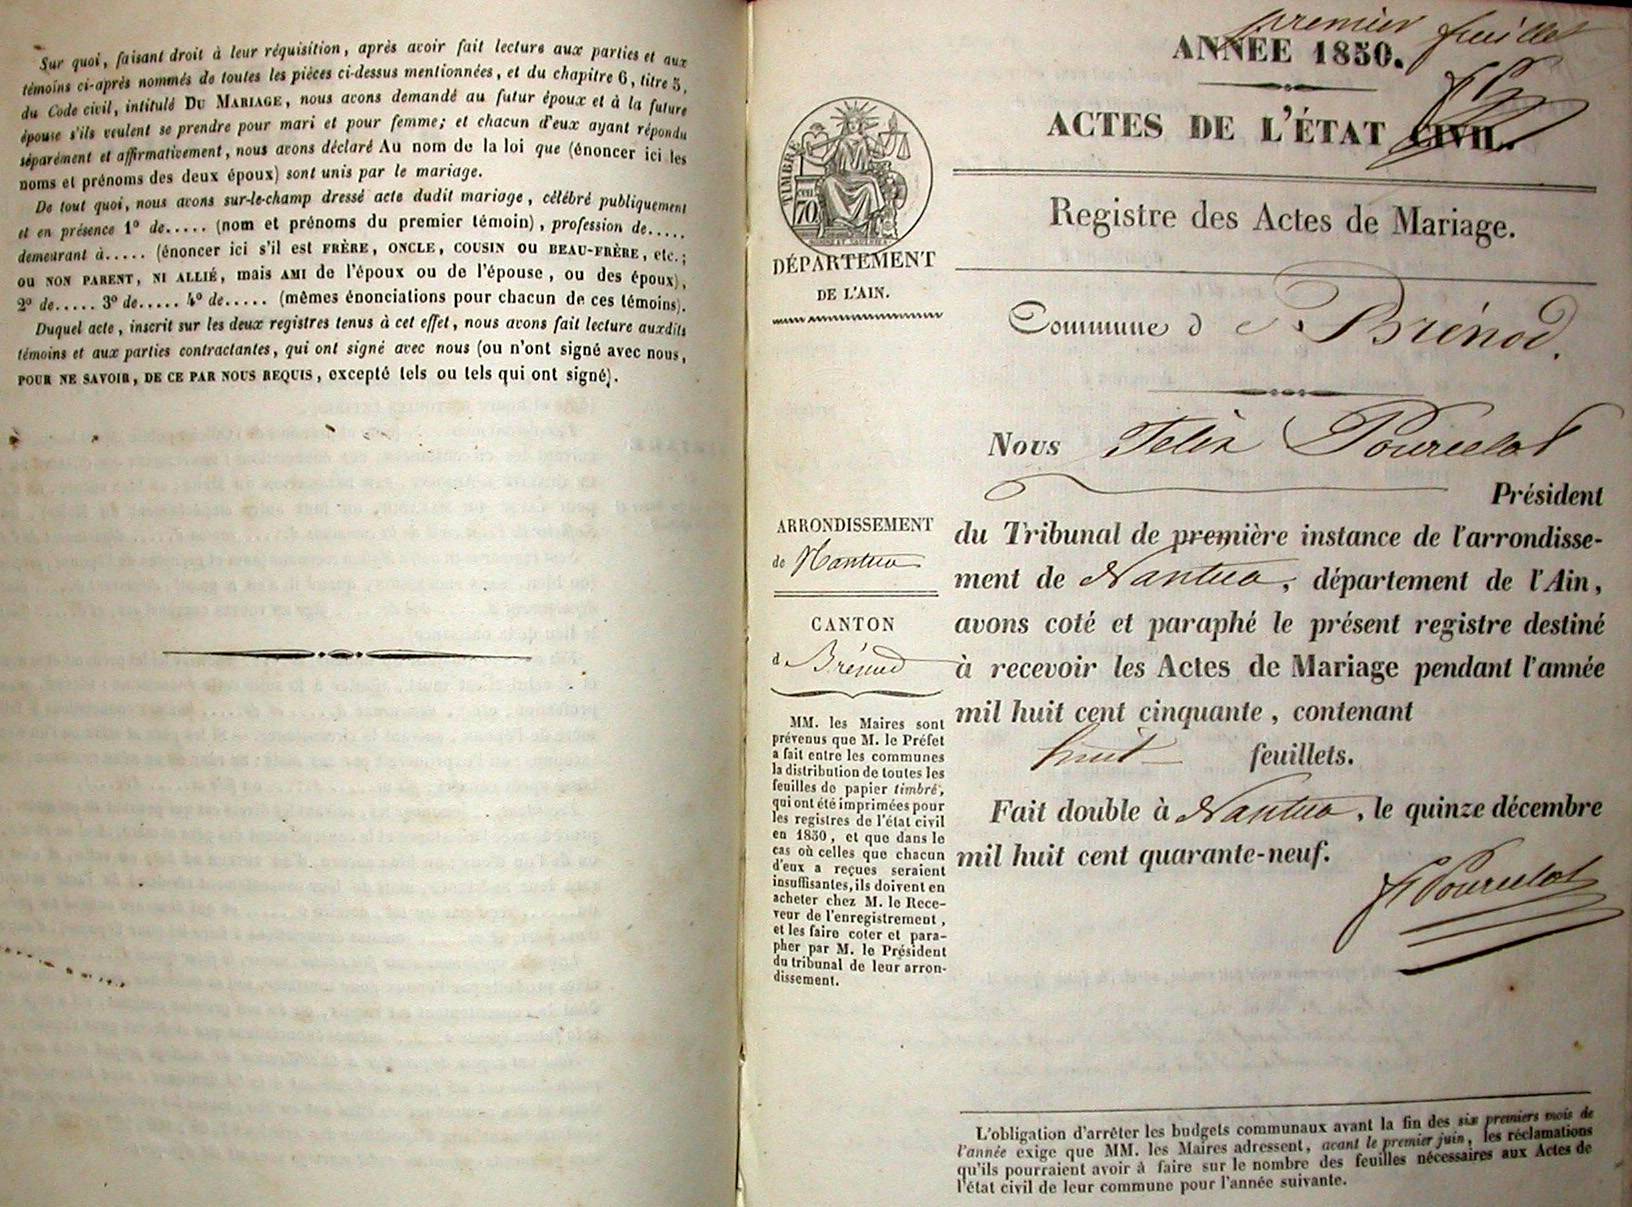 Sur quoi, faisant droit à leur réquisition, après avoir fait lecture aux parties et aux
témoins ci-après nommés de toutes les pièces ci-dessus mentionnées, et du chapitre 6, titre 5,
du Code civil, intitulé DU MARIAGE, nous avons demandé au futur époux et à la future
épouse s'ils veulent se prendre pour mari et pour femme; et chacun d'eux ayant répondu
séparément et affirmativement, nous avons déclaré Au nom de la loi que (énoncer ici les
noms et prénoms des deux époux) sont unis par le mariage.
De tout quoi, nous avons sur-le-champ dressé acte dudit mariage, célébré publiquement
et en présence 1º de..... (nom et prénoms du premier témoin), profession de.....
demeurant à..... (énoncer ici s'il est FRÈRE, ONCLE, COUSIN OU BEAU-FRÈRE, etc.;
OU NON PARENT, NI ALLIÉ, mais AMI de l'époux ou de l'épouse, ou des époux),
2º de..... 3º de..... 4º de..... (mêmes énonciations pour chacun de ces témoins).
Duquel acte, inscrit sur les deux registres tenus à cet effet, nous avons fait lecture auxdits
témoins et aux parties contractantes, qui ont signé avec nous (ou n'ont signé avec nous,
POUR NE SAVOIR, DE CE PAR NOUS REQUIS, excepté tels ou tels qui ont signé).
premier feuillet
ANNÉE 1850.
ACTES DE L'ÉTAT CIVIL.
Registre des Actes de Mariage.
TIMBRE
70
DÉPARTEMENT
DE L'AIN.
Commune de Brénod.
Nous Félix Pourcelot
Président
du Tribunal de première instance de l'arrondisse-
ment de Nantua, département de l'Ain,
avons coté et paraphé le présent registre destiné
à recevoir les Actes de Mariage pendant l'année
mil huit cent cinquante, contenant
huit feuillets.
Fait double à Nantua, le quinze décembre
mil huit cent quarante-neuf.
F Pourcelot
ARRONDISSEMENT
de Nantua
CANTON
d Brénod
MM. les Maires sont
prévenus que M. le Préfet
a fait entre les communes
la distribution de toutes les
feuilles de papier timbré,
qui ont été imprimées pour
les registres de l'état civil
en 1850, et que dans le
cas où celles que chacun
d'eux a reçues seraient
insuffisantes, ils doivent en
acheter chez M. le Rece-
veur de l'enregistrement,
et les faire coter et para-
pher par M. le Président
du tribunal de leur arron-
dissement.
L'obligation d'arrêter les budgets communaux avant la fin des six premiers mois de
l'année exige que MM. les Maires adressent, avant le premier juin, les réclamations
qu'ils pourraient avoir à faire sur le nombre des feuilles nécessaires aux Actes de
l'état civil de leur commune pour l'année suivante.